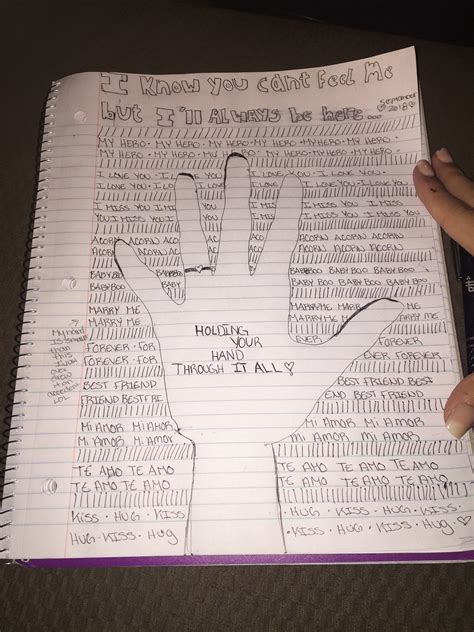 I Know you cant feel Me
but I'll ALWAYS be here...
September
2018
MY HERO · MY HERO · MY HERO · MY HERO · MY HERO ·
MY HERO · MY HERO · MY HERO · MY HERO · MY HERO
I LOVE YOU · I LOVE YOU · I LOVE YOU ·
I LOVE YOU · I LO YOU · I LOVE YOU · I LOVE YOU
I MISS YOU I MI YOU I MISS YOU I MISS YOU
YOU I MISS YOU I YOU I MISS YOU I MISS YOU
ACORN ACORN ACO ACORN ACORN ACORN
ACORN ACORN ACORN ACORN ACORN
BABY BABYBOO BABYBOO BABYBOO BABYBOO
BABY BOO BABYBOO BABYBOO BABYBOO
MARRY ME MARRY ME MARRY ME
MARRY ME MARRY ME ARRY ME
FOREVER · FOR EVER FOREVER
FOREVER · FOR EVER FOREVER
HOLDING
YOUR
HAND
THROUGH IT ALL
BEST FRIEND BEST FRIEND BEST
FRIEND BESTFRIE END BEST FRIEND
Mi AMOR Mi AMOR Mi AMOR Mi AMOR
Mi AMOR Mi AMOR Mi AMOR Mi AMOR
TE AMO TE AMO TE AMO TE AMO TE AMO
TE AMO TE AMO TE AMO TE AMO TE AMO
KISS · HUG · KISS HUG · KISS · HUG · KISS
HUG · KISS · HUG · KISS · HUG · KISS · HUG
My hand
is
than
this
LOL